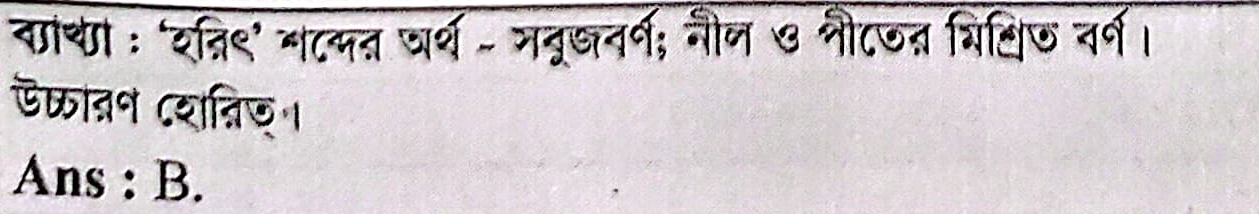 ব্যাখ্যা : 'হরিৎ' শব্দের অর্থ - সবুজবর্ণ; নীল ও পীতের মিশ্রিত বর্ণ।
উচ্চারণ হোরিত্।
Ans : B.